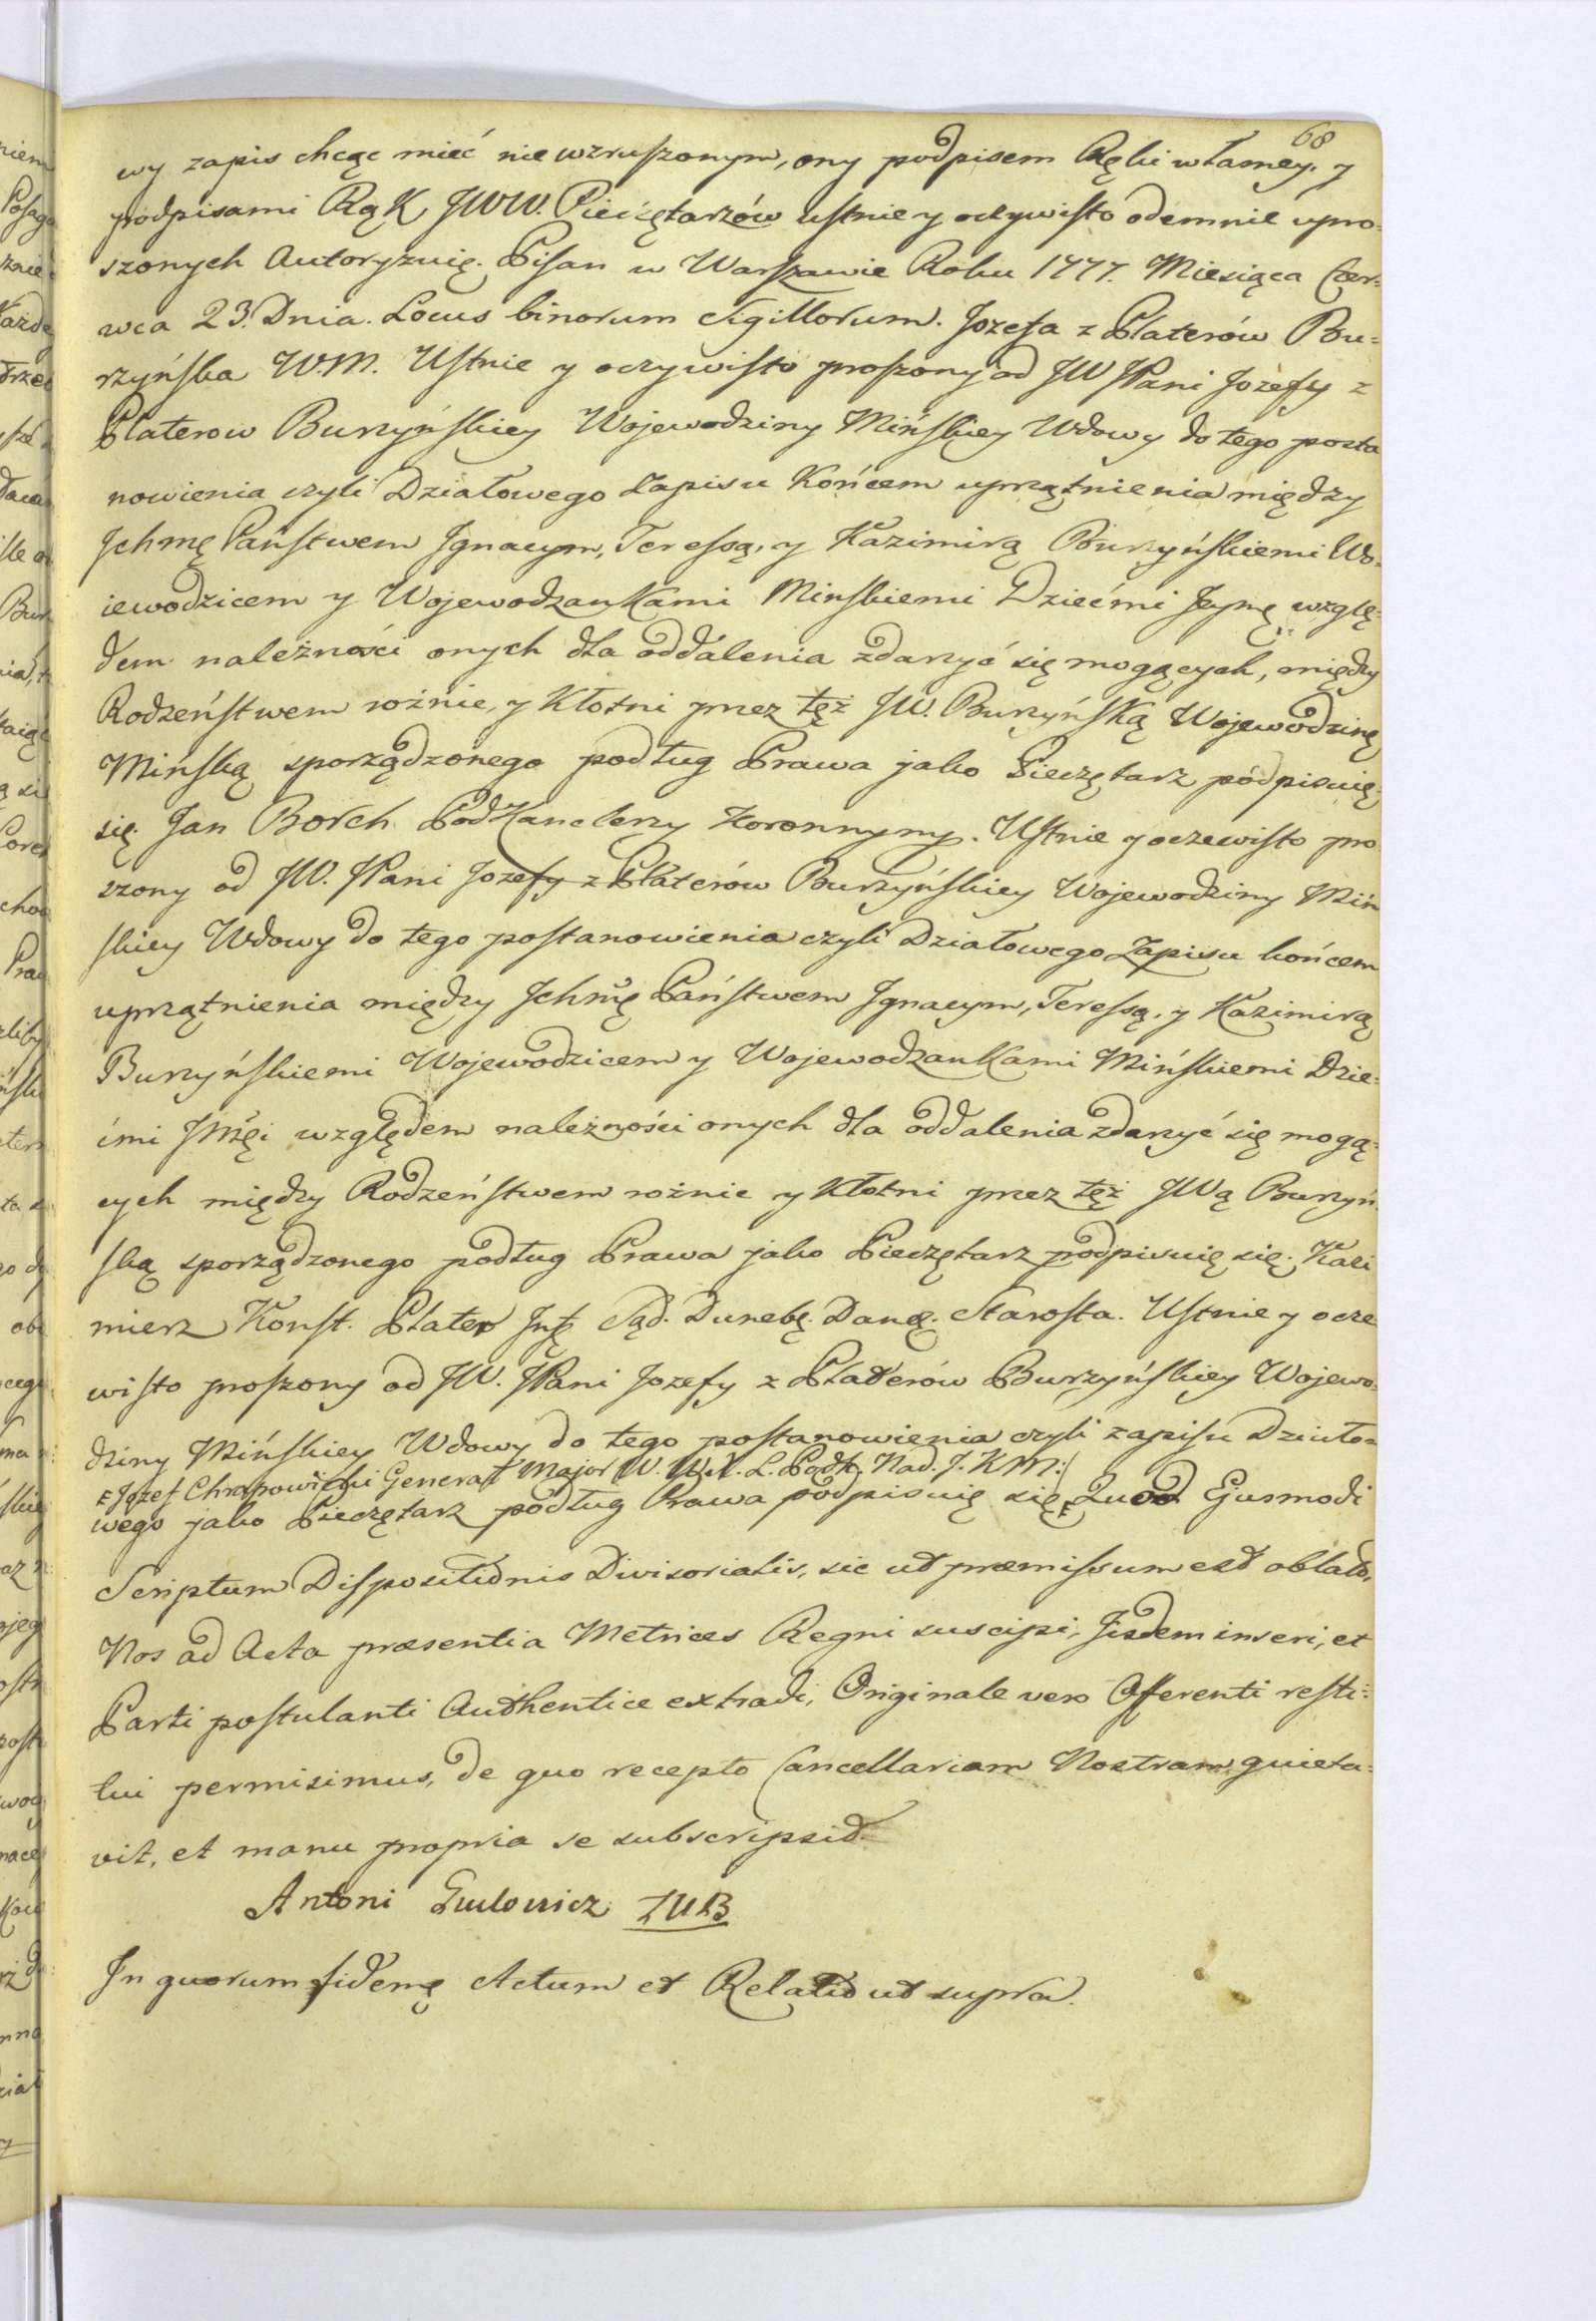 68
wy zapis chcąc mieć niewzruszonym, ony podpisem Ręki własney. y
podpisami Rąk JWW. Pieczętarzów ustnie y oczywisto odemnie upro=
szonych Autoryzuię. Pisan w Warszawie Roku 1777. Miesiąca Czer=
wca 23. Dnia. Locus binorum Sigillorum. Jozefa z Platerów Bu=
rzyńska W.M. Ustnie y oczywisto proszony od JW JPani Jozefy z
Platerow Burzyńskiey Wojewodziny Mińskiey Wdowy do tego posta
nowienia czyli Działowego Zapisu Końcem uprzątnienia między
Ichmę Państwem Ignacym, Teressą, y Kazimirą Burzyńskiemi Wo=
iewodzicem y Wojewodzankami Minskiemi Dziećmi Jeymę wzglę=
dem należności onych dla oddalenia zdarzyć się mogących, między
Rodzeństwem rożnic, y Kłotni przez tęż JW. Burzyńską Wojewodzinę
Mińską sporządzonego podług Prawa jako Pieczętarz podpisuię
się. Jan Borch Podkanclerzy Koronnymp. Ustnie y oczewisto pro
szony od JW. JPani Jozefy z Platerów Burzyńskiey Wojewodziny Miń
skiey Wdowy do tego postanowienia czyli Działowego Zapisu końcem
uprzątnienia między Ichmę Państwem Ignacym, Teressą, y Kazimirą
Burzyńskiemi Wojewodzicem y Wojewodzankami Mińskiemi Dzie=
ćmi względem należności onych dla oddalenia zdarzyć się mogą=
cych między Rodzeństwem rożnic y Kłotni przez tęż JWą Burzyń
ską sporządzonego podług Prawa jako Pieczętarz podpisuię się. Kazi
mierz Konst. Plater Sąd. Starosta. Ustnie y ocze
wisto proszony od JW. JPani Jozefy z Platerów Burzyńskiey Wojewo=
dziny Mińskiey Wdowy do tego postanowienia czyli zapisu Działo=
Jozef Chrapowicki Generał Major W. W.X.L. Nad. J.KM:
wego jako Pieczętarz podług Prawa podpisuię się Quod Ejusmodi
Scriptum Dispositionis Divisorialis, sic ut præmissum est oblato,
Nos ad Acta præsentia Metrices Regni suscipi, Iisdem inseri, et
Parti postulanti Authentice extradi, Originale vero Offerenti resti=
tui permisimus, de quo recepto Cancellariam Nostram quieta=
vit, et manu propria se subscripsit.
Antoni
In quorum fidem Actum et Relatio ut supra.